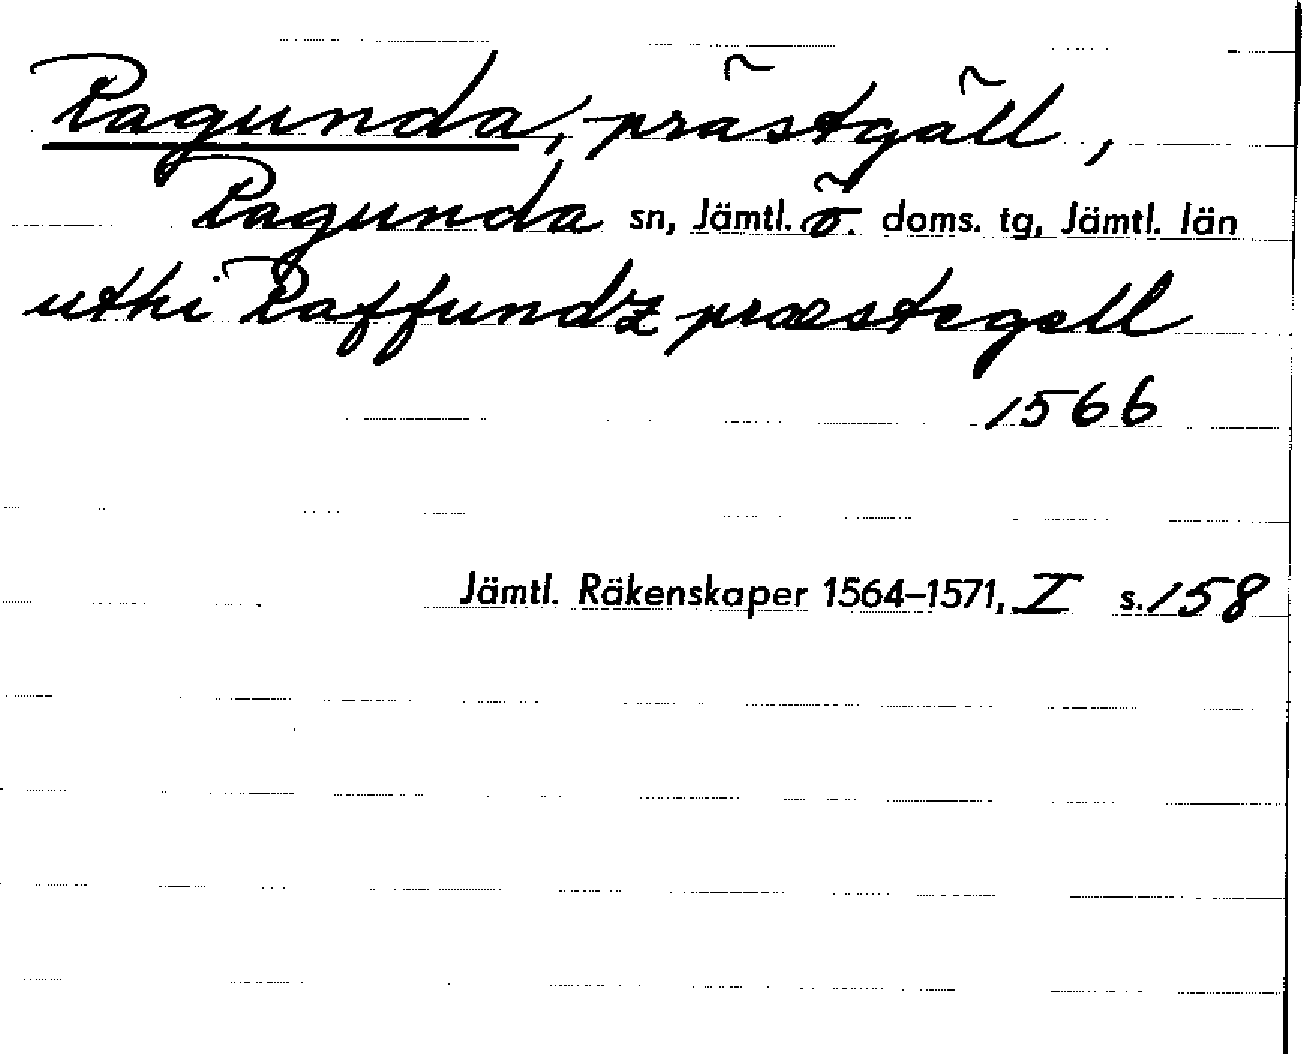 Ragunda, -prästgäll,
Ragunda sn, Jämtl. ö. doms. tg, Jämtl. län
uthi Raffundz præstegell
1566
Jämtl. Räkenskaper 1564–1571, I s. 158